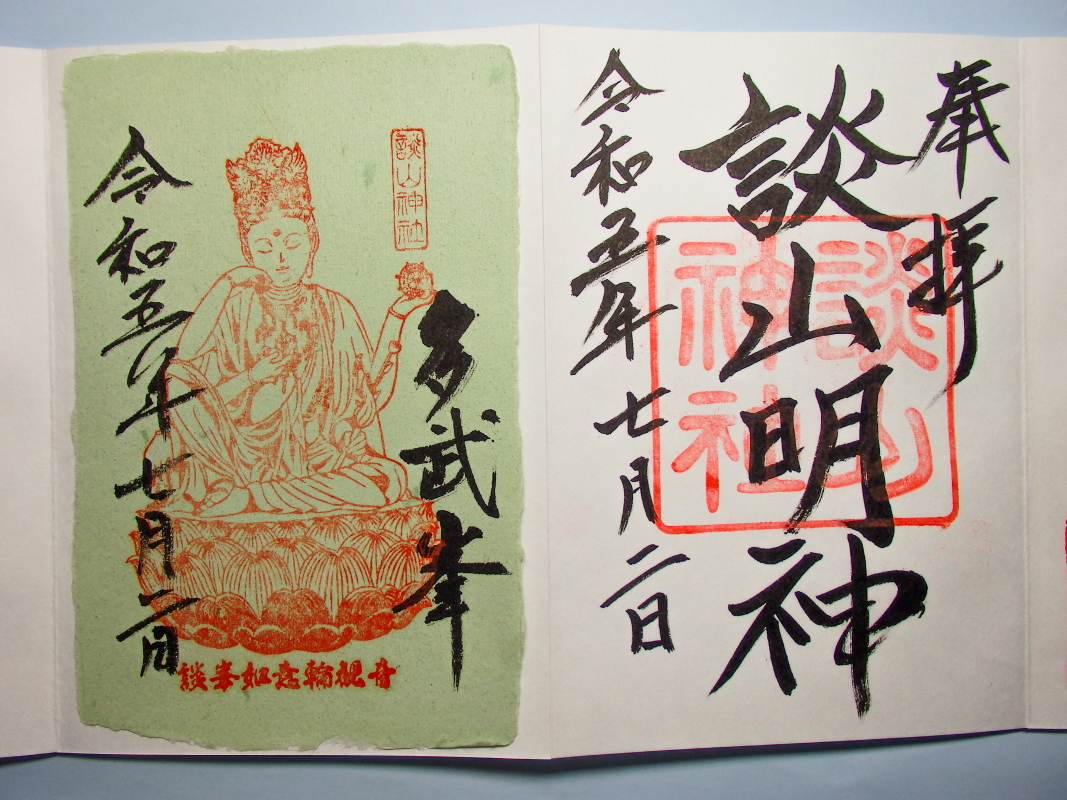 奉拝
談山明神
談山
神社
令和五年七月二日
多武峯
談山神社
令和五年七月二日
談峯如意輪觀音